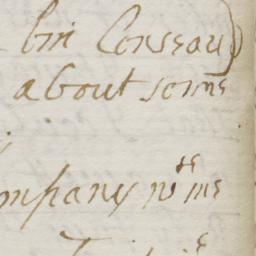 bin Conseau)
about some
mpany wth me